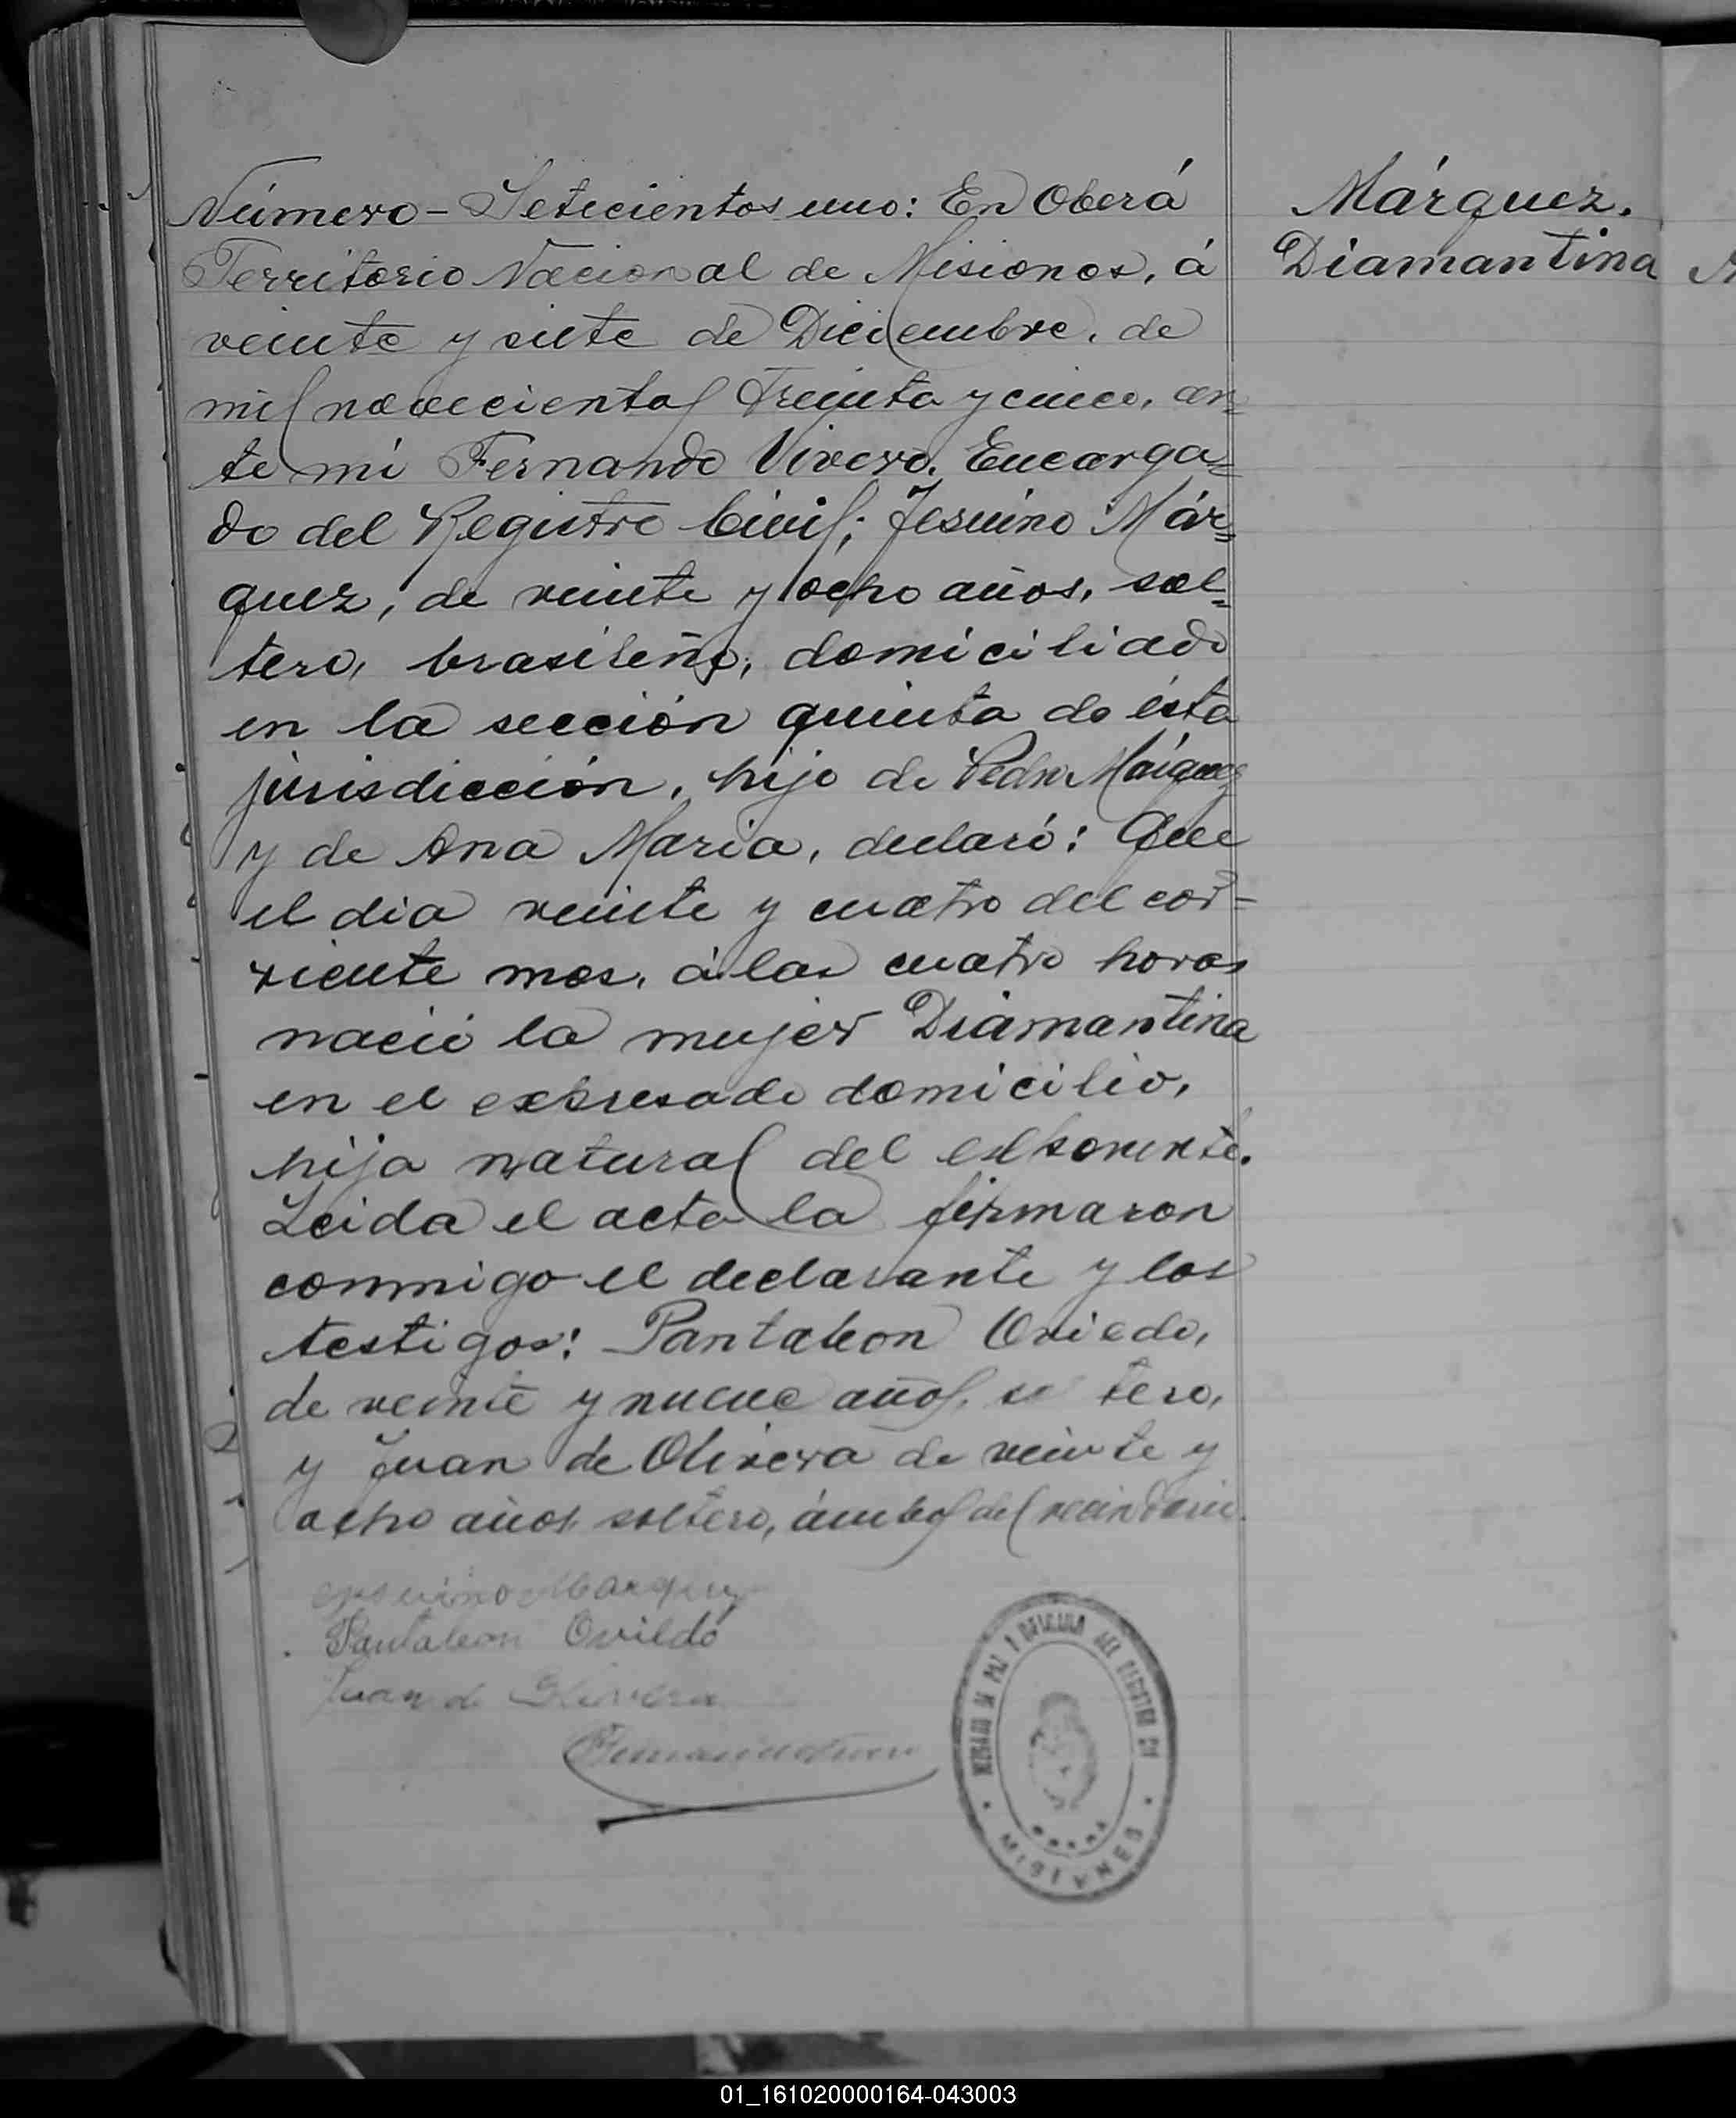 Número - Setecientos uno: En Oberá
Territorio Nacional de Misiones, á
veinte y siete de Diciembre, de
mil novecientos treinta y cinco, an=
te mí Fernando Vivero, Encarga=
do del Registro Civil; Jesuino Már=
quez, de veinte y ocho años, sol=
tero, brasileño, domiciliado
en la sección quinta de ésta
jurisdicción, hijo de Pedro Márquez
y de Ana Maria, declaró: Que
el dia veinte y cuatro del cor=
riente mes, á las cuatro horas
nació la mujer Diamantina
en el expresado domicilio,
hija natural del exponente.
Leida el acta la firmaron
conmigo el declarante y los
testigos: Pantaleon Oviedo,
de veinte y nueve años, so tero,
y Juan de Olivera de veinte y
ocho años soltero, ámbos del vecindario.
Márquez.
Diamantina
Jesuino Marquez
Pantaleon Oviedo
Juan de Olivera
JUZGADO DE PAZ Y OFICINA DEL REGISTRO CIVIL
OBERÁ
MISIONES
01_161020000164-043003